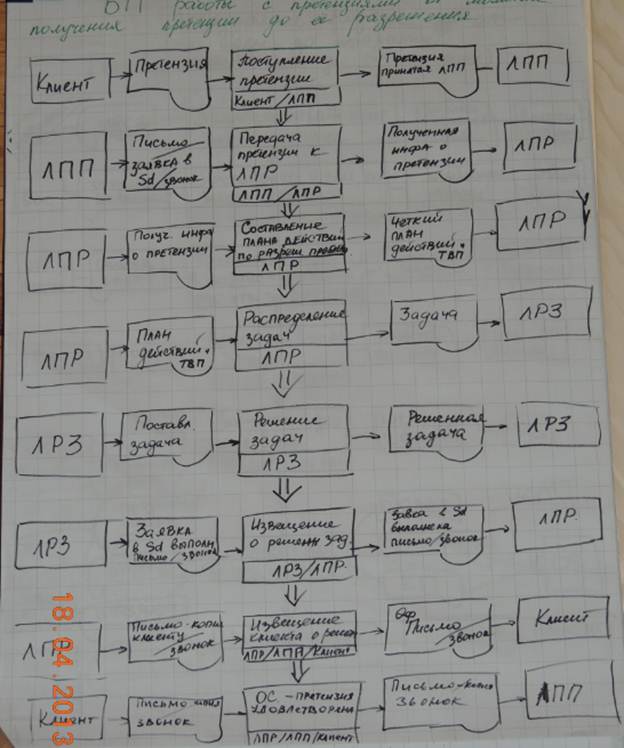 БП работы с претензиями от момента
получения претензии до её разрешения.
Клиент
Претензия
Поступление
претензии
Клиент/ЛПП
Претензия
принятая ЛПП
ЛПП
ЛПП
Письмо
заявка в
Sd/звонок
Передача
претензии к
ЛПР
ЛПП/ЛПР
Полученная
инфа о
претензии
ЛПР
ЛПР
Получ. инфа
о претензии
Составление
плана действий
по разреш
ЛПР
Четкий
план
действий.
ТВП
ЛПР
ЛПР
План
действий.
ТВП
Распределение
задач
ЛПР
Задача
ЛРЗ
ЛРЗ
Поставл.
задача
Решение
задач
ЛРЗ
Решенная
задача
ЛРЗ
ЛРЗ
Заявка
в Sd выполн
письмо/звонок
Извещение
о решении зад.
ЛРЗ/ЛПР.
в Sd
выполнена
письмо/звонок
ЛПР.
Письмо-копия
клиенту
звонок
Извещение
клиента о решен
ЛПР/ЛПП/Клиент
Письмо
звонок
Клиент
Клиент
Письмо-копия
звонок
ОС - претензия
удовлетворена
ЛПР/ЛПП/Клиент
Письмо-копия
звонок
ЛПП
18.04.2013